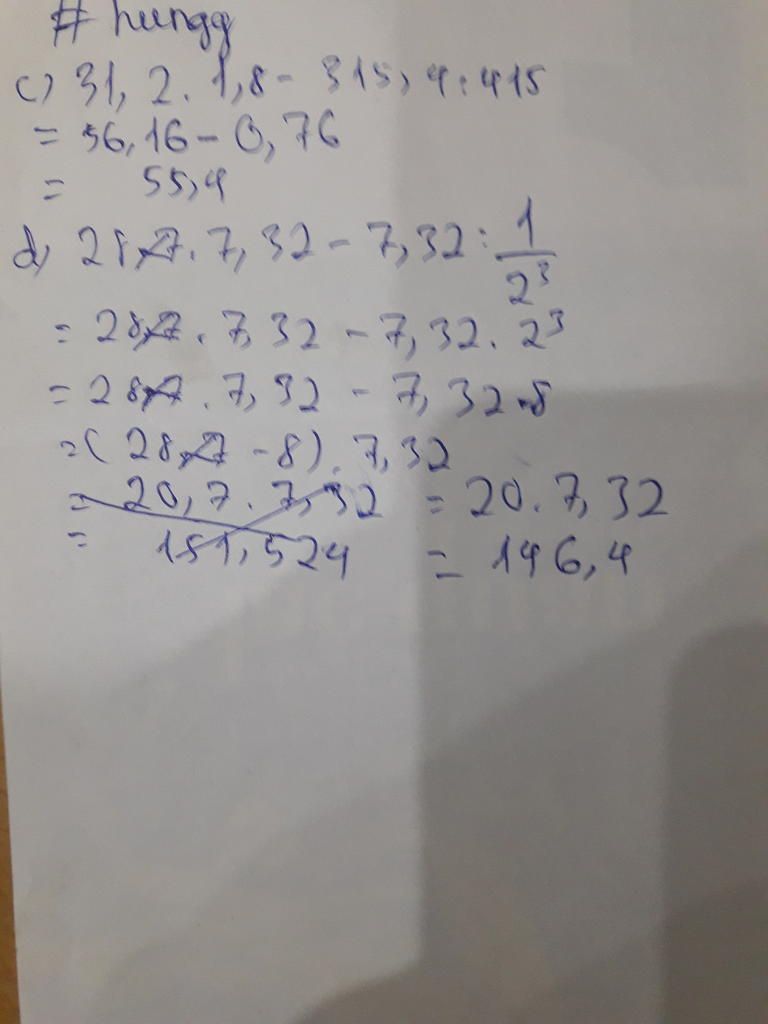 # hungg
c) 31,2. 1,8 - 315,4:415
= 56,16 - 0,76
= 55,4
d) 28. 7,32 - 7,32 : 1/2³
= 28. 7,32 - 7,32. 2³
= 28. 7,32 - 7,32.8
= (28 - 8). 7,32
= 20,7. 7,32 = 20. 7,32
= 151,524 = 146,4